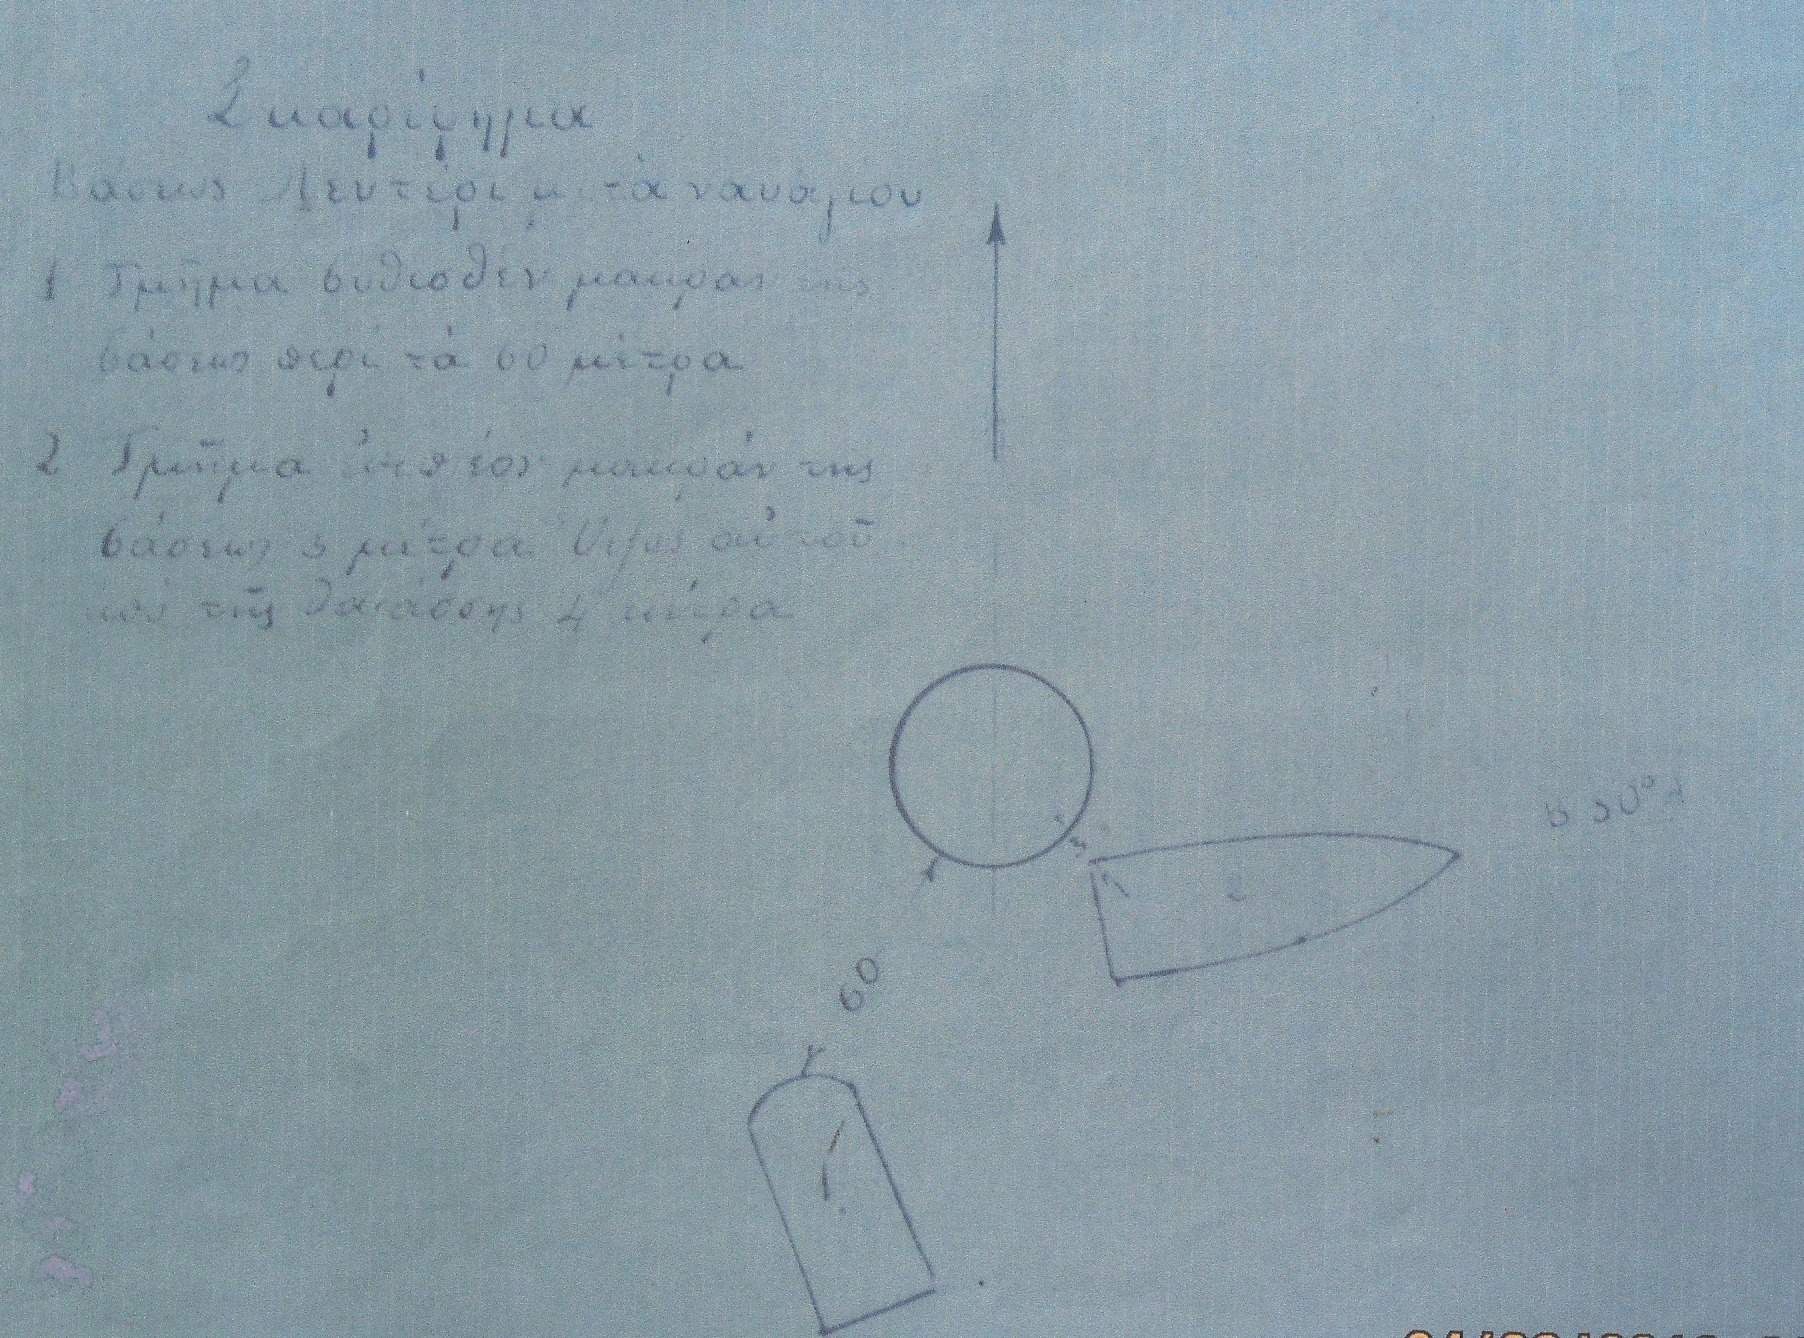 Σκαρίφημα
Βάσεως Λευτέρι μ τά ναυάγιου
1 Τμῆμα βυθισθέν μακράν τῆς
βάσεως περί τά 60 μέτρα
2 Τμῆμα μακράν τῆς
βάσεως 3 μέτρα Ὕψος αὐτοῦ
ἀπό τῆς θαλάσσης 4 μέτρα
3
2
60
1